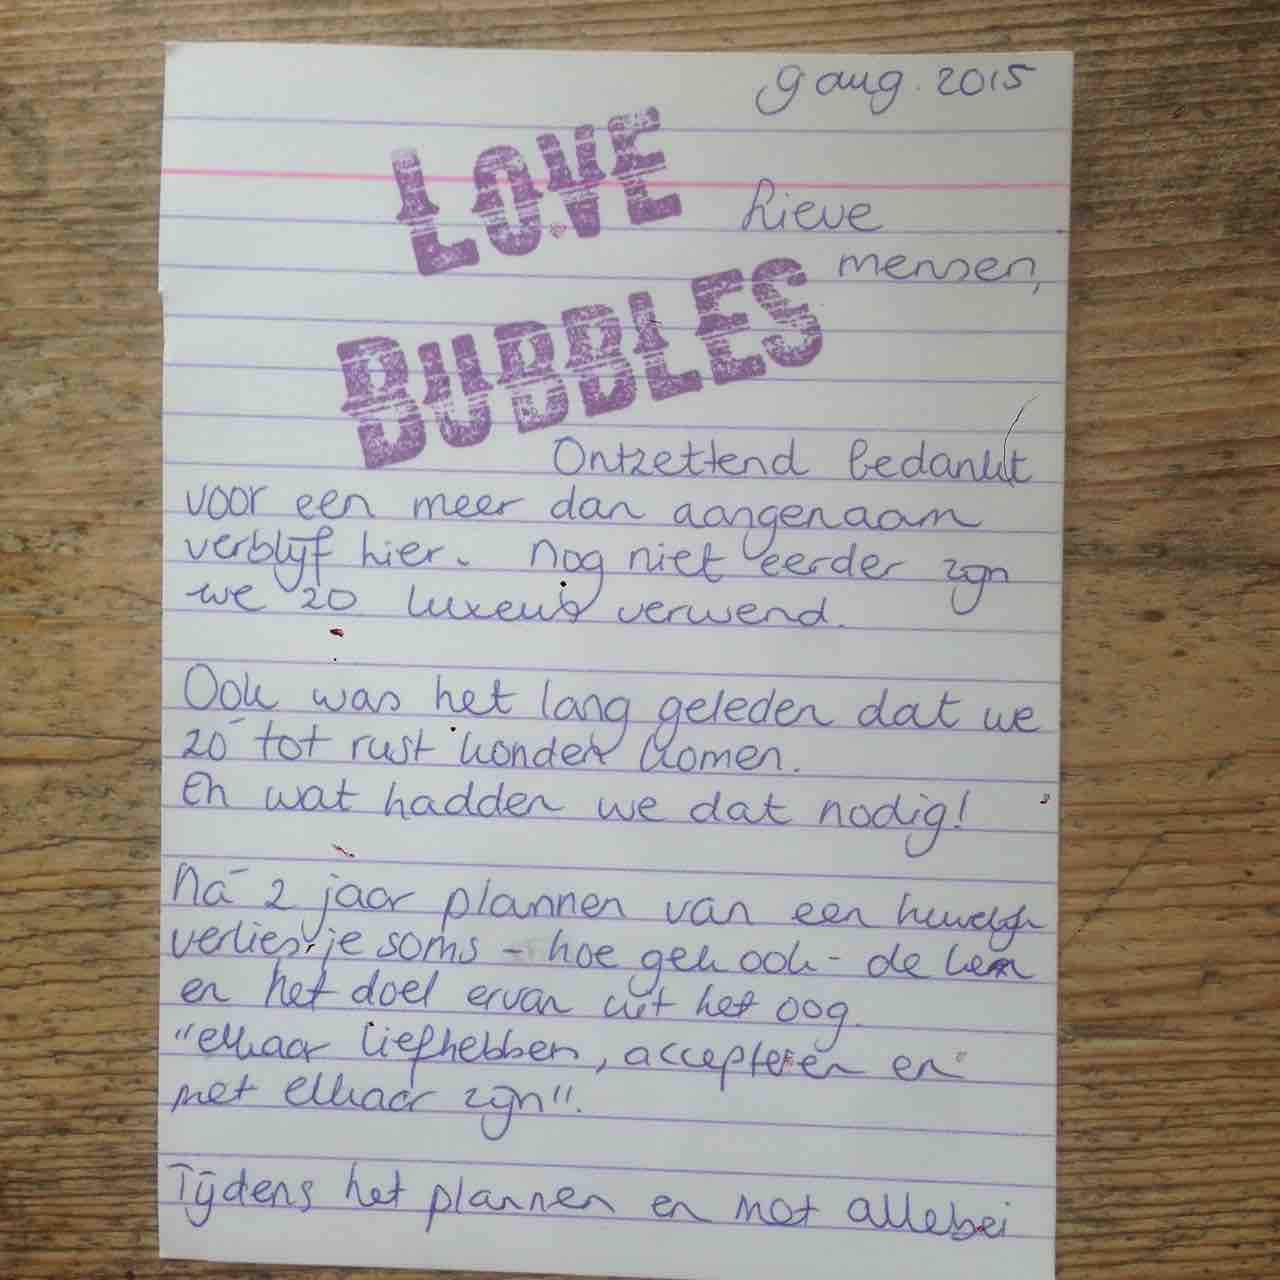 9 aug. 2015
LOVE
BUBBLES
Lieve
mensen,
Ontzettend bedankt
voor een meer dan aangenaam
verblijf hier. Nog niet eerder zijn
we zo luxeus verwend.
Ook was het lang geleden dat we
zo tot rust konden komen.
En wat hadden we dat nodig!
Ná 2 jaar plannen van een huwelijk
verlies je soms - hoe gek ook - de kern
en het doel ervan uit het oog.
"elkaar liefhebben, accepteren en
met elkaar zijn".
Tijdens het plannen en met allebei